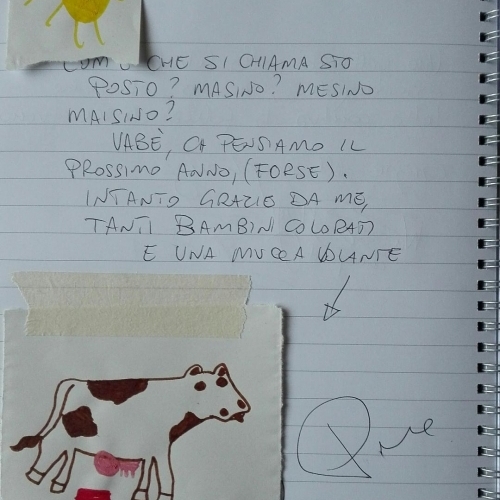 COM'È CHE SI CHIAMA STO
POSTO? MASINO? MESINO
MAISINO?
VABÈ, CI PENSIAMO IL
PROSSIMO ANNO, (FORSE).
INTANTO GRAZIE DA ME,
TANTI BAMBINI COLORATI
E UNA MUCCA VOLANTE